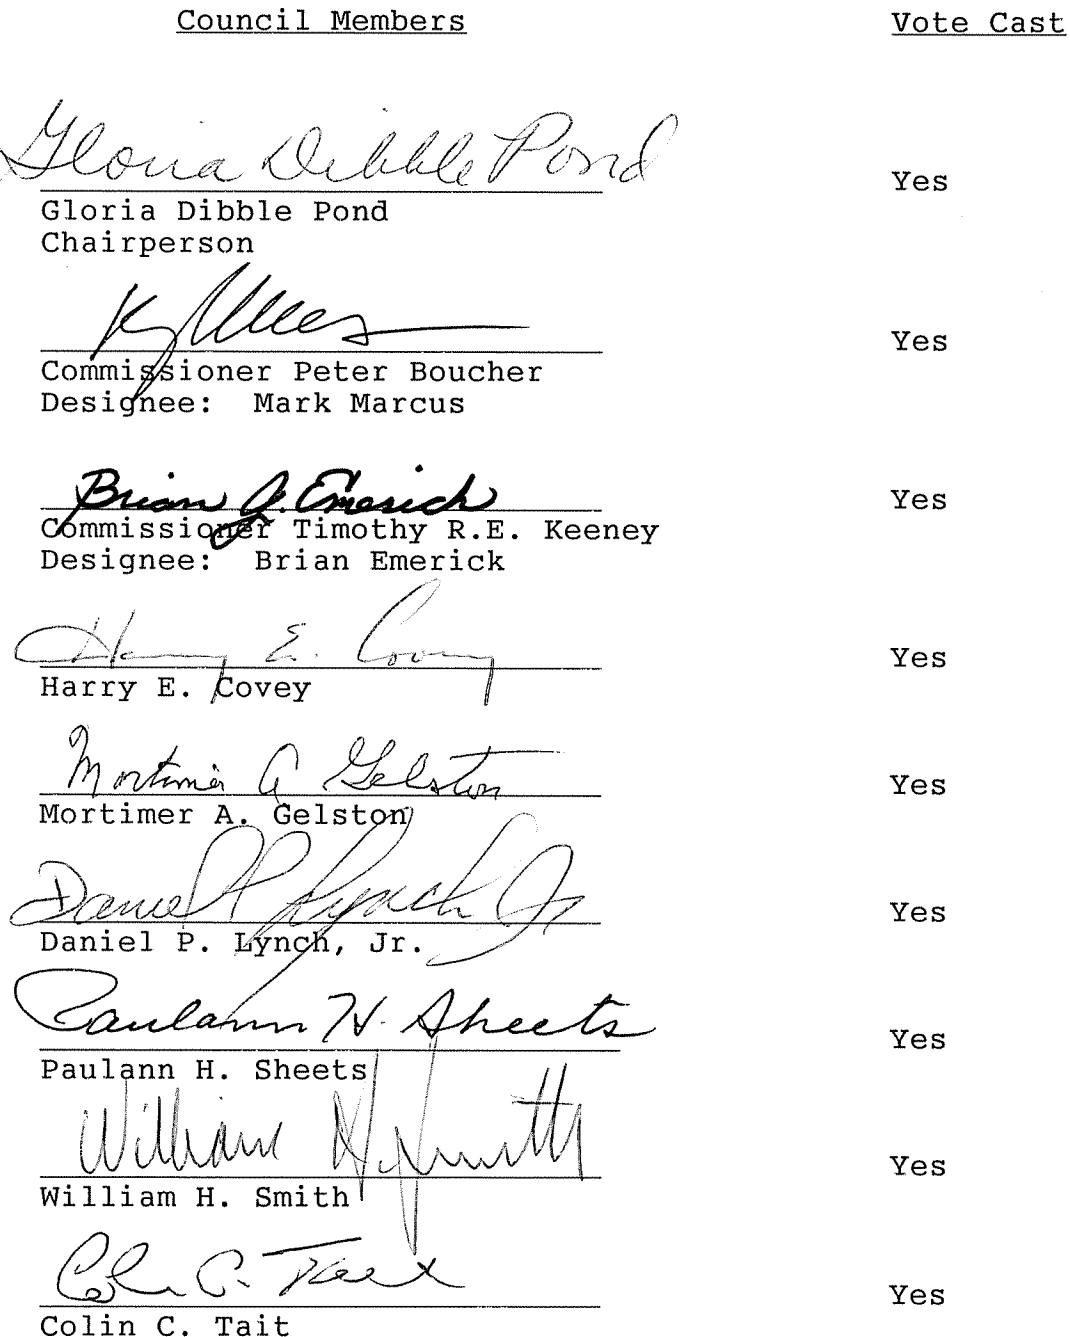 Council Members Vote Cast
Gloria Dibble Pond Yes
Gloria Dibble Pond
Chairperson
Yes
Commissioner Peter Boucher
Designee: Mark Marcus
Brian J. Emerick Yes
Commissioner Timothy R.E. Keeney
Designee: Brian Emerick
Harry E. Covey Yes
Harry E. Covey
Mortimer A Gelston Yes
Mortimer A. Gelston
Daniel P Lynch Jr Yes
Daniel P. Lynch, Jr.
Paulann H. Sheets Yes
Paulann H. Sheets
William H. Smith Yes
William H. Smith
Colin C. Tait Yes
Colin C. Tait